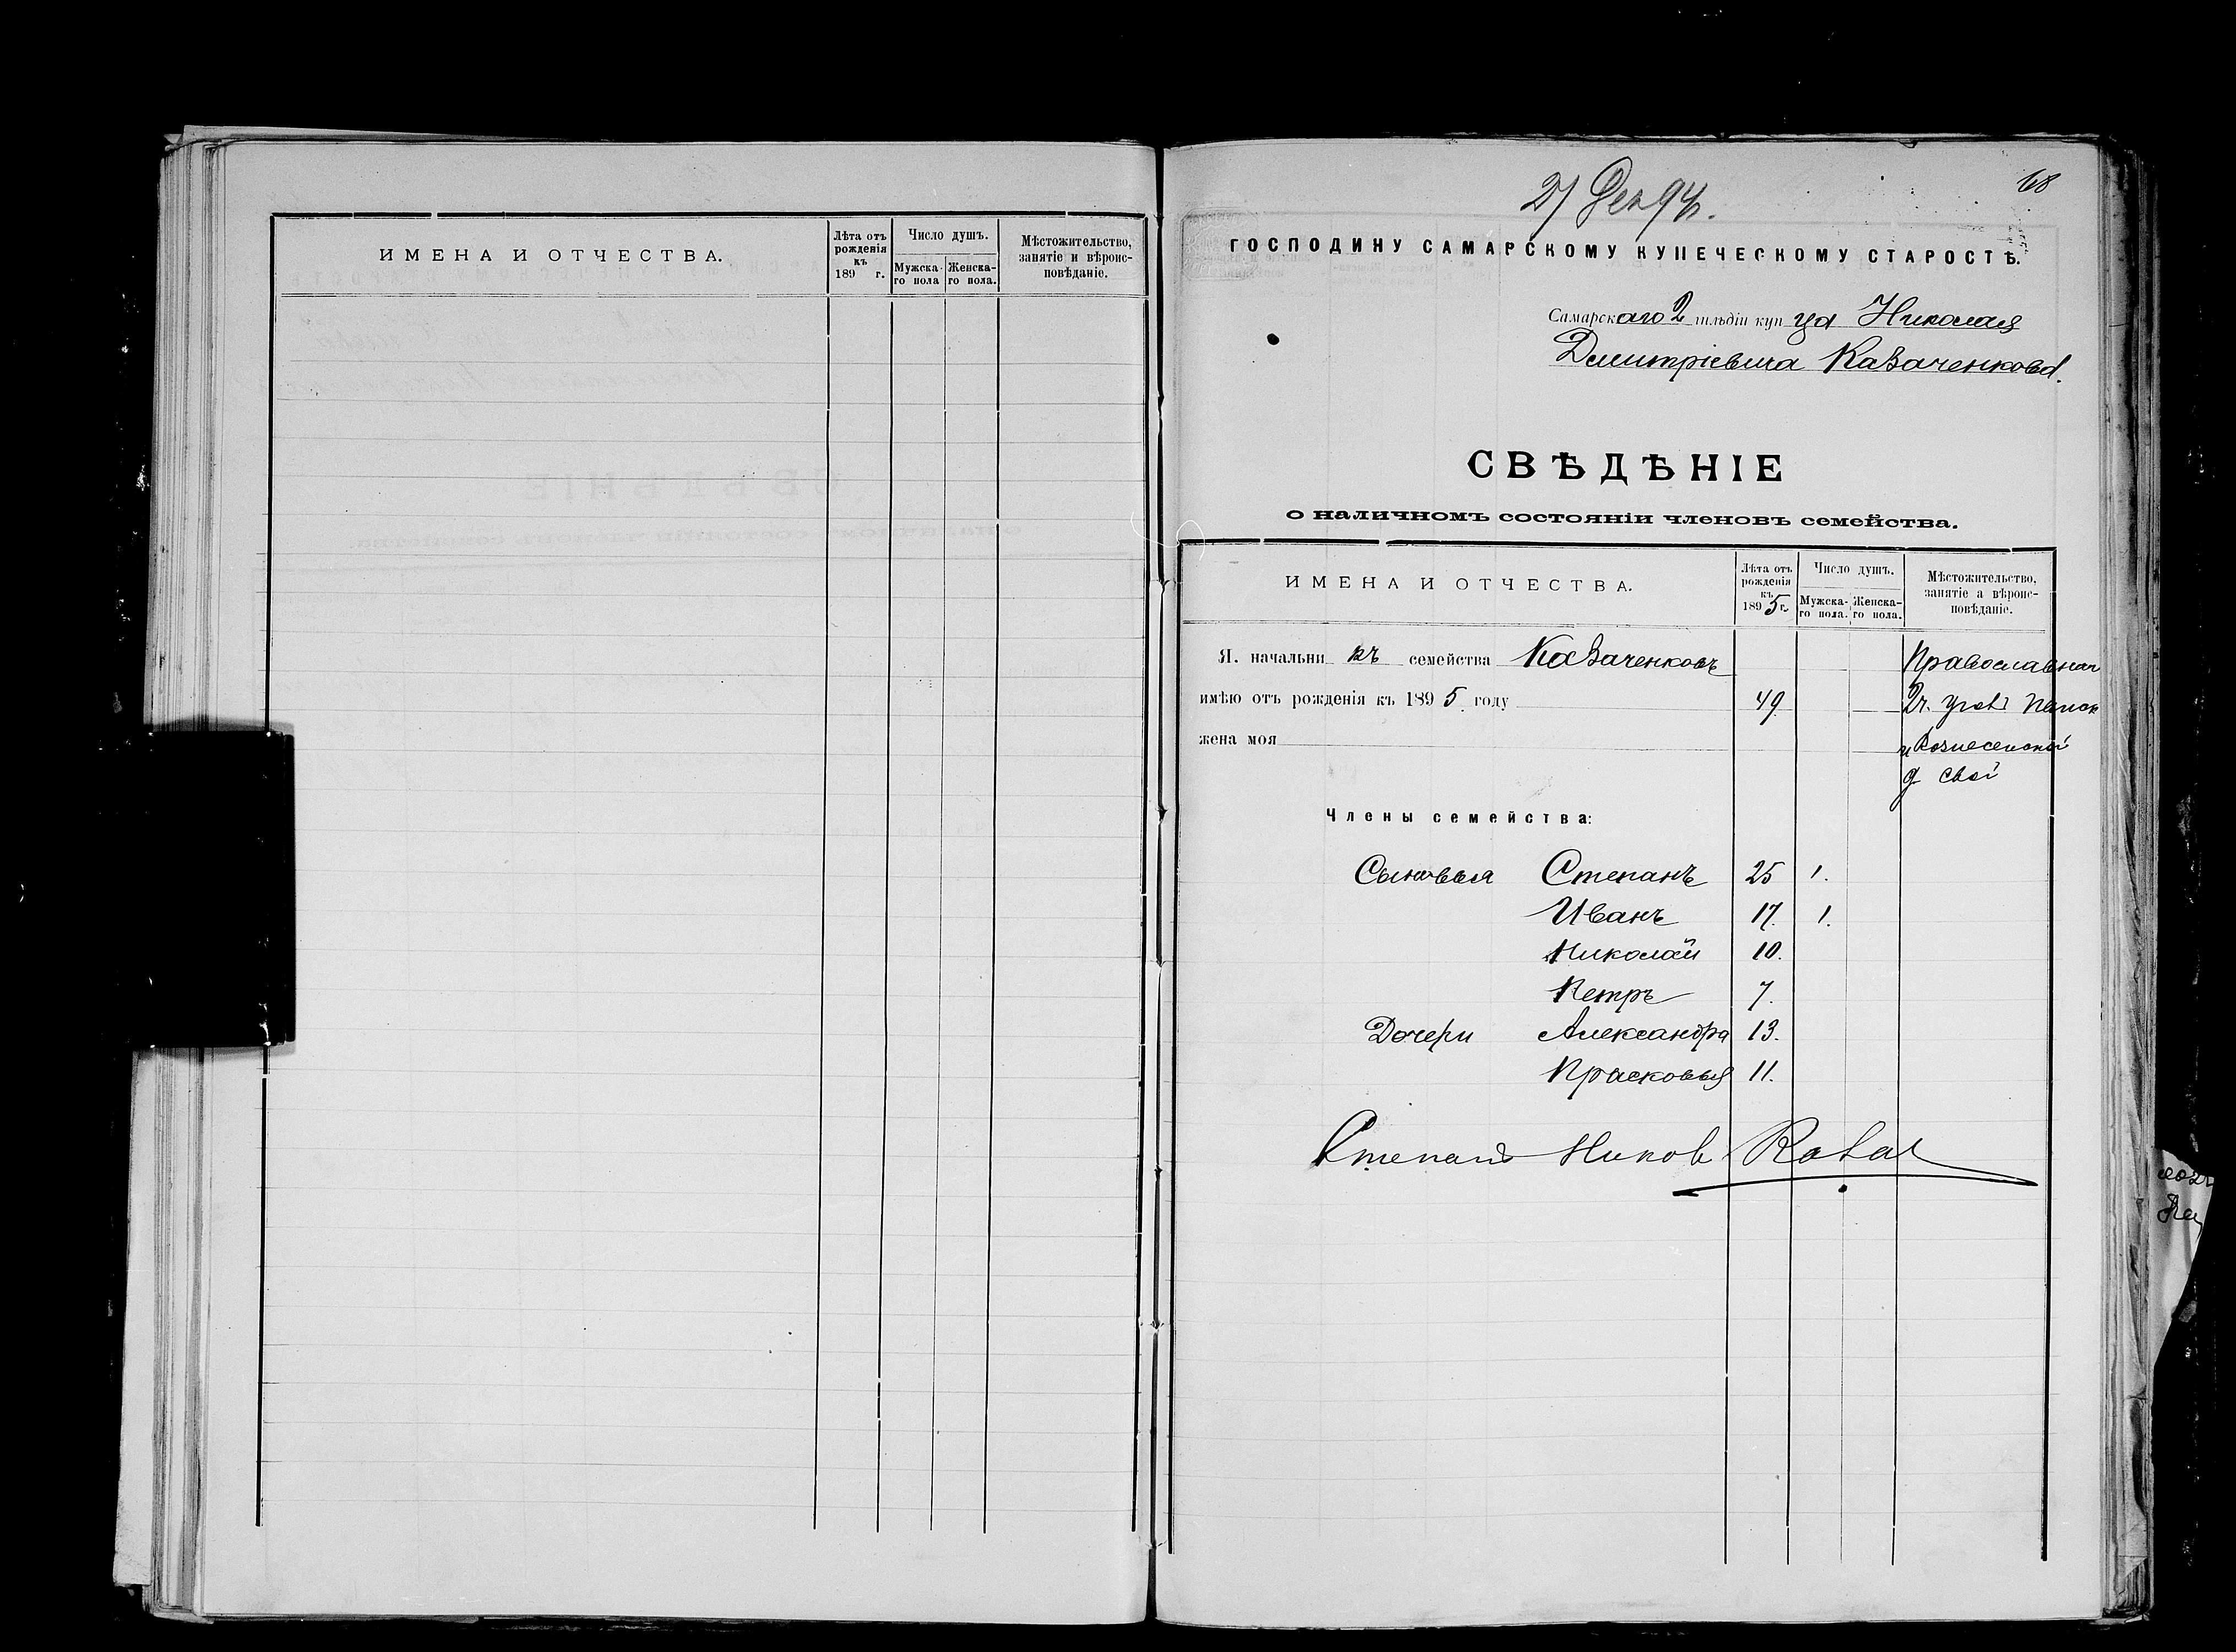 ИМЕНА И ОТЧЕСТВА.
Лѣта отъ рожденія къ 189 г.
Число душъ.
Мужска-го пола
Женска-го пола.
Мѣстожительство, занятіе и вѣроис-повѣданіе.
27 Дек 94 г.
68
ГОСПОДИНУ САМАРСКОМУ КУПЕЧЕСКОМУ СТАРОСТѢ.
Самарскаго 2 гильдіи купца Николая
Дмитріевича Казаченкова.
СВѢДѢНІЕ
о наличномъ состояніи членовъ семейства.
ИМЕНА И ОТЧЕСТВА.
Лѣта отъ рожденія къ 1895 г.
Число душъ.
Мужска-го пола.
Женска-го пола.
Мѣстожительство, занятіе а вѣроис-повѣданіе.
Я. начальникъ семейства Казаченковъ Православнаг
имѣю отъ рожденія къ 1895 году 49 2 ч.
жена моя и Вознесенской
д свой
Члены семейства:
Сыновья Степанъ 25 1.
Иванъ 17. 1.
Николай 10.
Петръ 7.
Дочери Александра 13.
Прасковья 11.
Степанъ Ников Казач